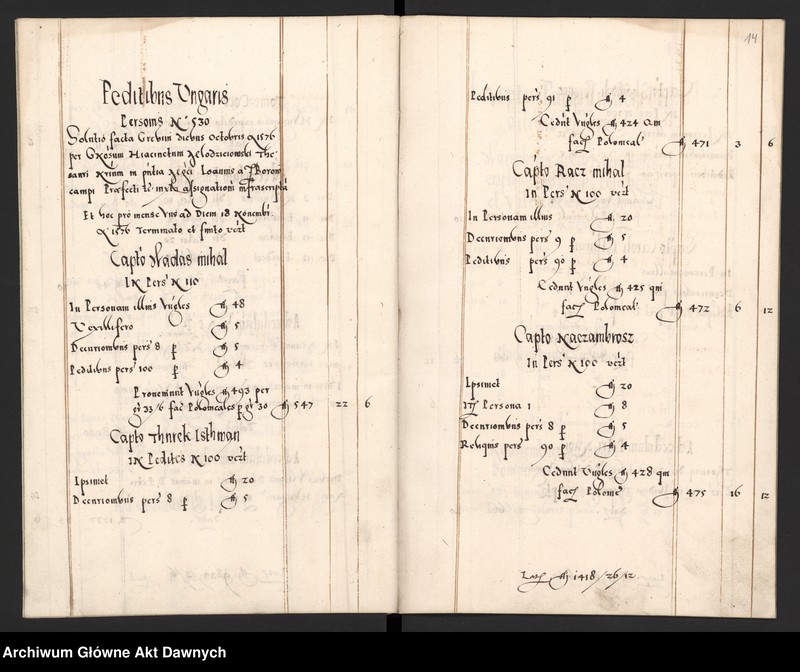 Peditibus Ungaris
Persons N 530
Solutio facta Grebin diebus Octobris A 1576
per Gnosum Hiacinctum Mlodzieiowski The
sauri in pntia Loannis a Tboron
campi Praefecti tc iuxta assignationi infrascripta
Et hoc pro mense uno ad Diem 18 Nouembr
A 1576 Terminato et finito vczt
Capto Nadas mihal
In Pers N 110
In Personam illius Vngles fl 48
Vexillifero fl 5
Decurionibus pers 8 p fl 5
Peditibus pers 100 p fl 4
Proneniunt Vngles fl 493 per
gr 33/6 fac Polonicales p gr 30 fl 547 22 6
Capto Thurek Isthwan
In Pedites N 100 vczt
Ipsimet fl 20
Decurionibus pers 8 p fl 5
14
Peditibus pers 91 p fl 4
Cedunt Vngles fl 424 qm
fact Polonical fl 471 3 6
Capto Racz mihal
In Pers N 100 vczt
In Personam illius fl 20
Decurionibus pers 9 p fl 5
Peditibus pers 90 p fl 4
Cedunt Vngles fl 425 qm
fact Polonical fl 472 6 12
Capto Naczambrosz
In Pers N 100 vczt
Ipsimet fl 20
Itt Persona 1 fl 8
Decurionibus pers 8 p fl 5
Reliquis pers 90 p fl 4
Cedunt Vngles fl 428 qm
fact Polone fl 475 16 12
Lats fl 1418/26/12.
Archiwum Główne Akt Dawnych